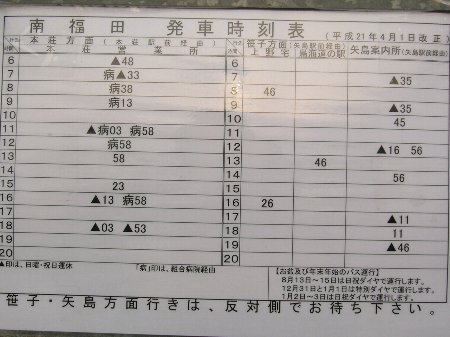 南福田 発車時刻表 (平成21年4月1日改正)
本荘方面 (本荘駅前経由) 笹子方面 (矢島駅前経由) 矢島案内所 (矢島駅前経由)
本荘営業所 上野宅 鳥海道の駅
6 ▲48 6
7 病▲33 7 ▲35
8 病38 8 46
9 病13 9 ▲35
10 10 45
11 ▲病03 病58 11
12 病58 12 ▲16 56
13 58 13 46
14 14 56
15 23 15
16 ▲13 病58 16 26
17 17 ▲11
18 ▲03 ▲53 18 11
19 19 ▲46
20 20
▲印は、日曜・祝日運休 「病」印は、組合病院経由
【お盆及び年末年始のバス運行】
8月13日~15日は日祝ダイヤで運行します。
12月31日と1月1日は特別ダイヤで運行します。
1月2日~3日は日祝ダイヤで運行します。
笹子・矢島方面行きは、反対側でお待ち下さい。